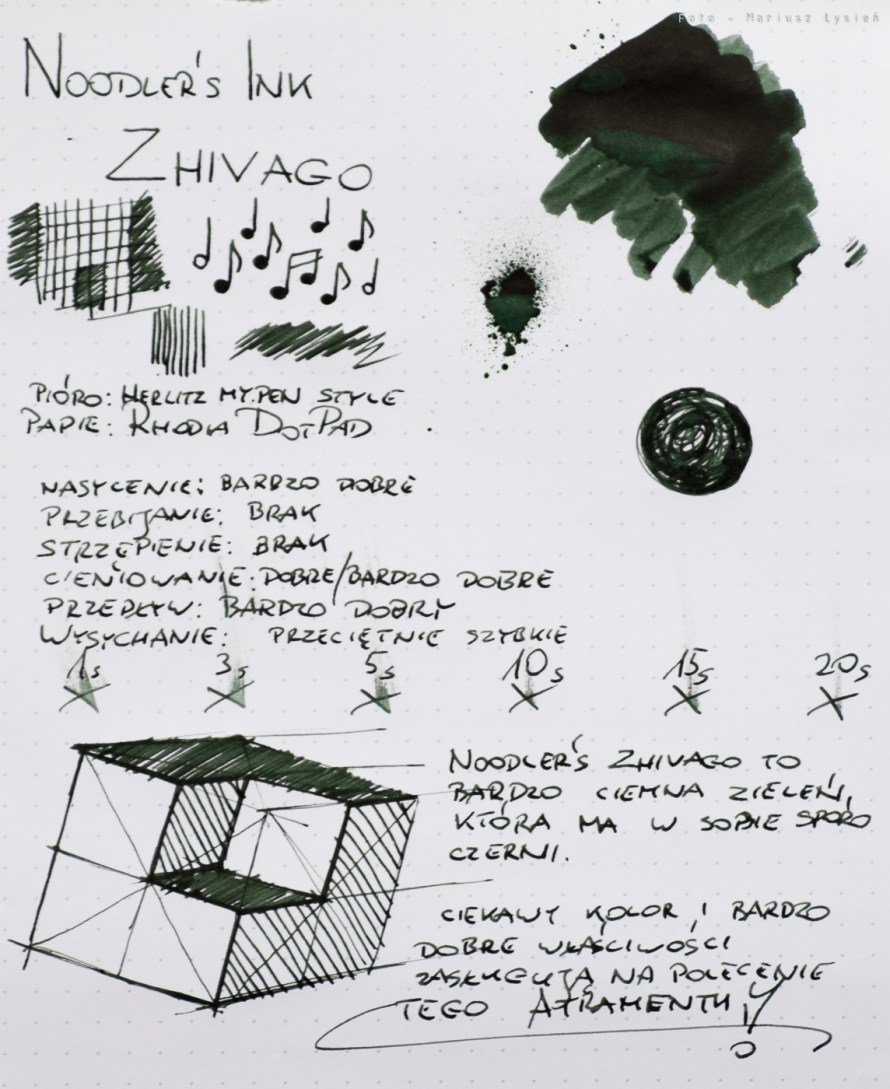 Foto - Mariusz Łysień
NOODLER'S INK
ZHIVAGO
PIÓRO: HERLITZ MY.PEN STYLE
PAPIE: RHODIA DOTPAD
NASYCENIE: BARDZO DOBRE
PRZEBIJANIE: BRAK
STRZĘPIENIE: BRAK
CIENIOWANIE: DOBRE/BARDZO DOBRE
PRZEPŁYW: BARDZO DOBRY
WYSYCHANIE: PRZECIĘTNIE SZYBKIE
1s 3s 5s 10s 15s 20s
NOODLER'S ZHIVAGO TO
BARDZO CIEMNA ZIELEŃ,
KTÓRA MA W SOBIE SPORO
CZERNI.
CIEKAWY KOLOR I BARDZO
DOBRE WŁAŚCIWOŚCI
ZASŁUGUJĄ NA POLECENIE
TEGO ATRAMENTU!